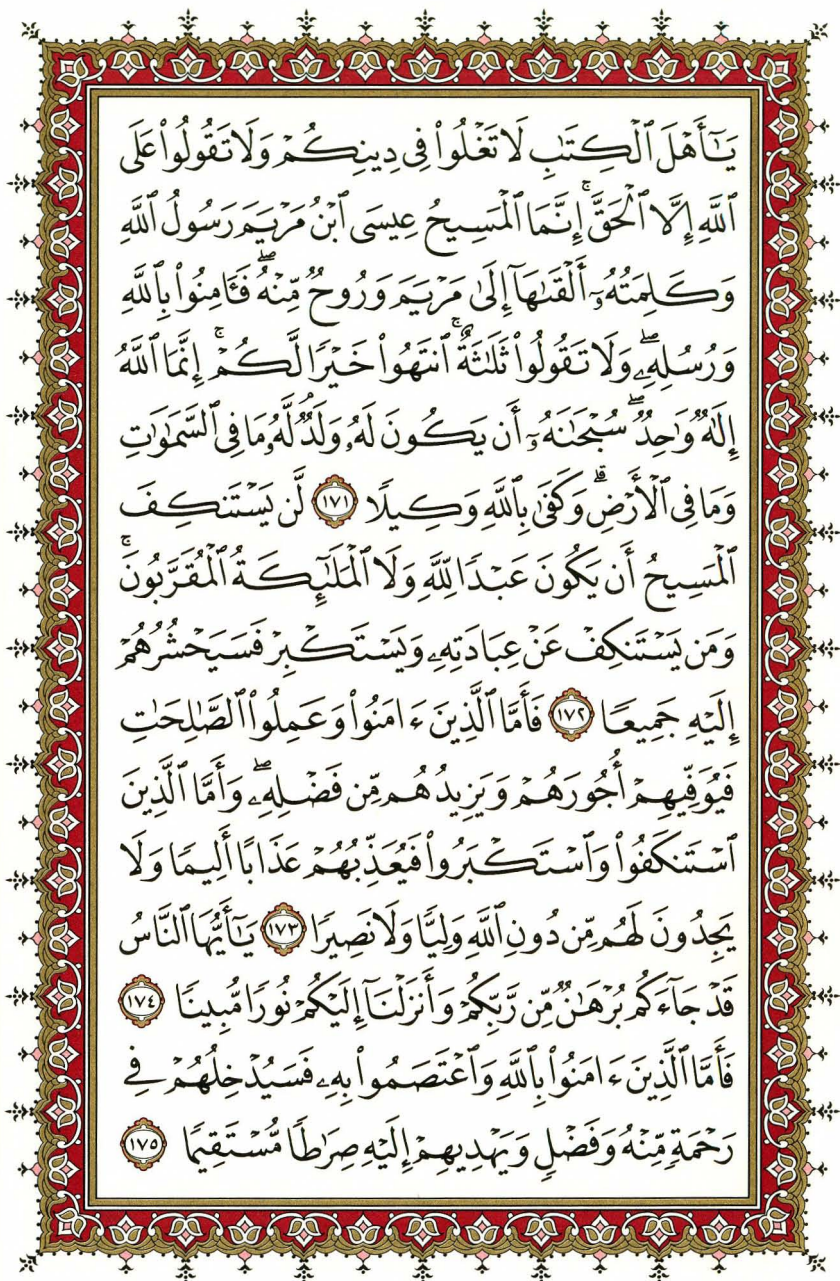 يَـٰٓأَهْلَ ٱلْكِتَـٰبِ لَا تَغْلُوا۟ فِى دِينِكُمْ وَلَا تَقُولُوا۟ عَلَى
ٱللَّهِ إِلَّا ٱلْحَقَّ ۚ إِنَّمَا ٱلْمَسِيحُ عِيسَى ٱبْنُ مَرْيَمَ رَسُولُ ٱللَّهِ
وَكَلِمَتُهُۥٓ أَلْقَىٰهَآ إِلَىٰ مَرْيَمَ وَرُوحٌ مِّنْهُ ۖ فَـَٔامِنُوا۟ بِٱللَّهِ
وَرُسُلِهِۦ ۖ وَلَا تَقُولُوا۟ ثَلَـٰثَةٌ ۚ ٱنتَهُوا۟ خَيْرًا لَّكُمْ ۚ إِنَّمَا ٱللَّهُ
إِلَـٰهٌ وَٰحِدٌ ۖ سُبْحَـٰنَهُۥٓ أَن يَكُونَ لَهُۥ وَلَدٌ ۘ لَّهُۥ مَا فِى ٱلسَّمَـٰوَٰتِ
وَمَا فِى ٱلْأَرْضِ ۗ وَكَفَىٰ بِٱللَّهِ وَكِيلًا ١٧١ لَّن يَسْتَنكِفَ
ٱلْمَسِيحُ أَن يَكُونَ عَبْدًا لِّلَّهِ وَلَا ٱلْمَلَـٰٓئِكَةُ ٱلْمُقَرَّبُونَ ۚ
وَمَن يَسْتَنكِفْ عَنْ عِبَادَتِهِۦ وَيَسْتَكْبِرْ فَسَيَحْشُرُهُمْ
إِلَيْهِ جَمِيعًا ١٧٢ فَأَمَّا ٱلَّذِينَ ءَامَنُوا۟ وَعَمِلُوا۟ ٱلصَّـٰلِحَـٰتِ
فَيُوَفِّيهِمْ أُجُورَهُمْ وَيَزِيدُهُم مِّن فَضْلِهِۦ ۖ وَأَمَّا ٱلَّذِينَ
ٱسْتَنكَفُوا۟ وَٱسْتَكْبَرُوا۟ فَيُعَذِّبُهُمْ عَذَابًا أَلِيمًا وَلَا
يَجِدُونَ لَهُم مِّن دُونِ ٱللَّهِ وَلِيًّا وَلَا نَصِيرًا ١٧٣ يَـٰٓأَيُّهَا ٱلنَّاسُ
قَدْ جَآءَكُم بُرْهَـٰنٌ مِّن رَّبِّكُمْ وَأَنزَلْنَآ إِلَيْكُمْ نُورًا مُّبِينًا ١٧٤
فَأَمَّا ٱلَّذِينَ ءَامَنُوا۟ بِٱللَّهِ وَٱعْتَصَمُوا۟ بِهِۦ فَسَيُدْخِلُهُمْ فِى
رَحْمَةٍ مِّنْهُ وَفَضْلٍ وَيَهْدِيهِمْ إِلَيْهِ صِرَٰطًا مُّسْتَقِيمًا ١٧٥